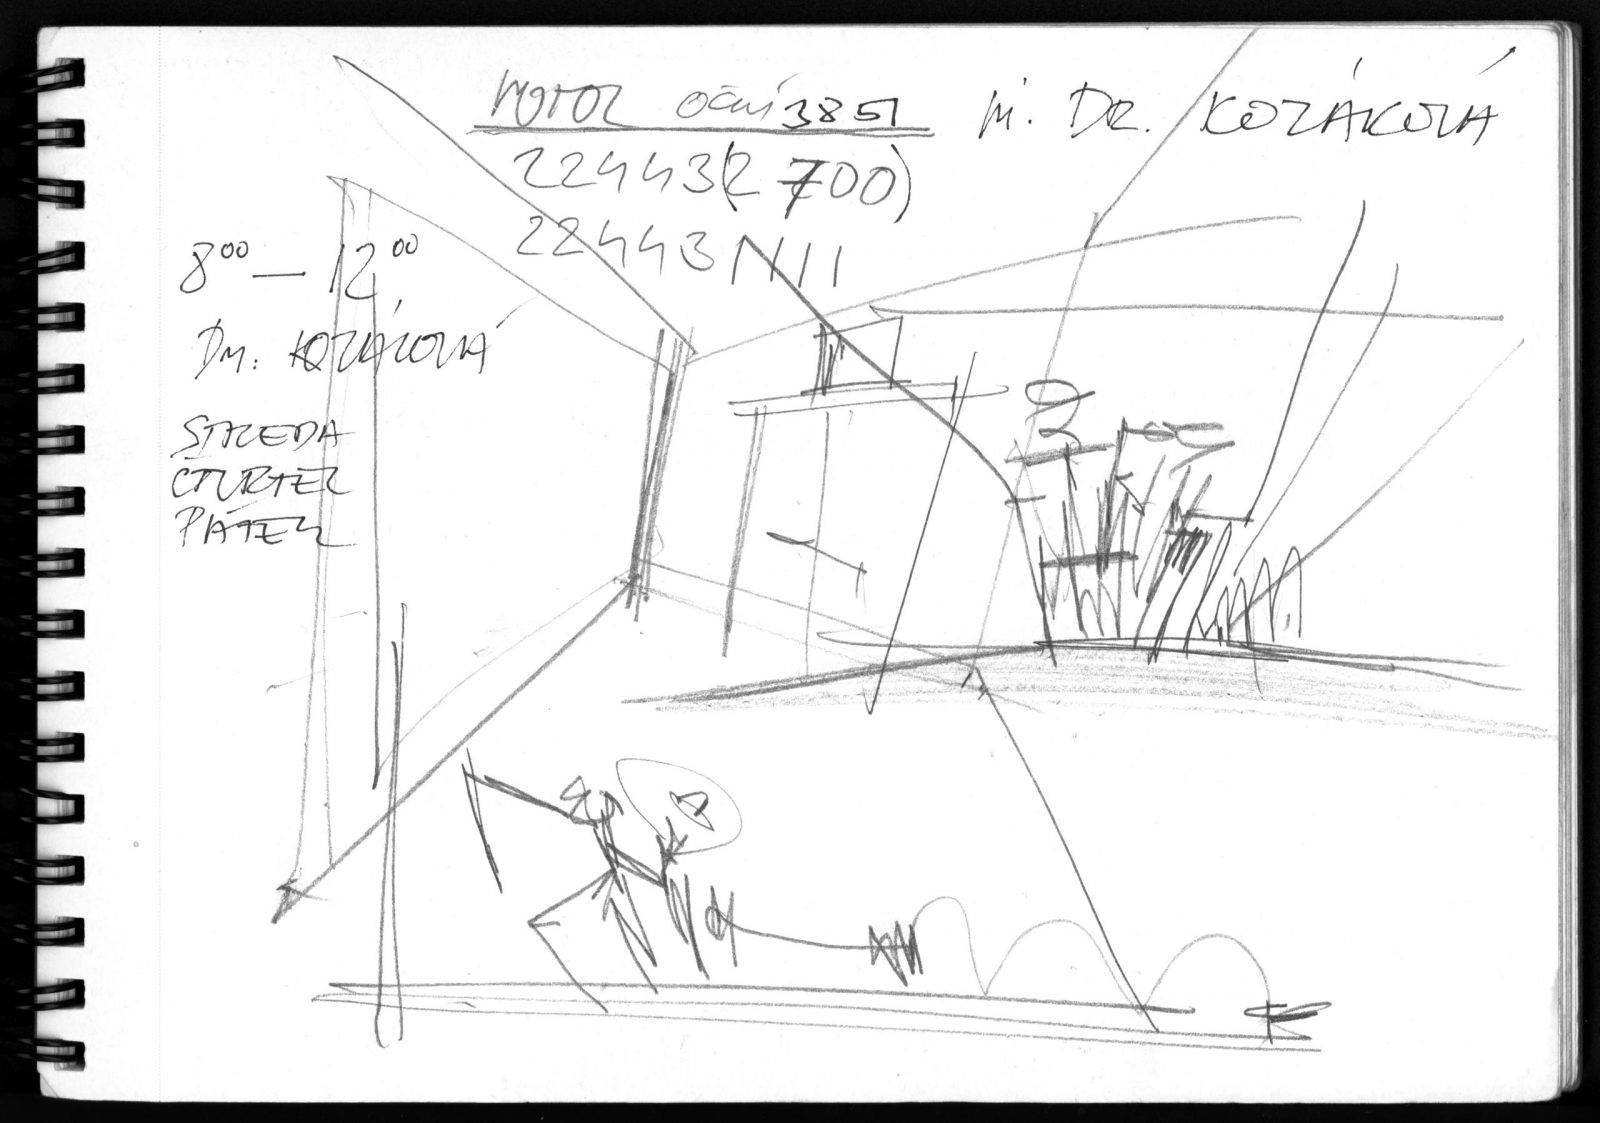 MOTOL oční 3851
M. DR. KOZÁKOVÁ
22443(2 700)
22443
8⁰⁰ — 12⁰⁰
DM. KOZÁKOVÁ
STŘEDA
ČTVRTEK
PÁTEK